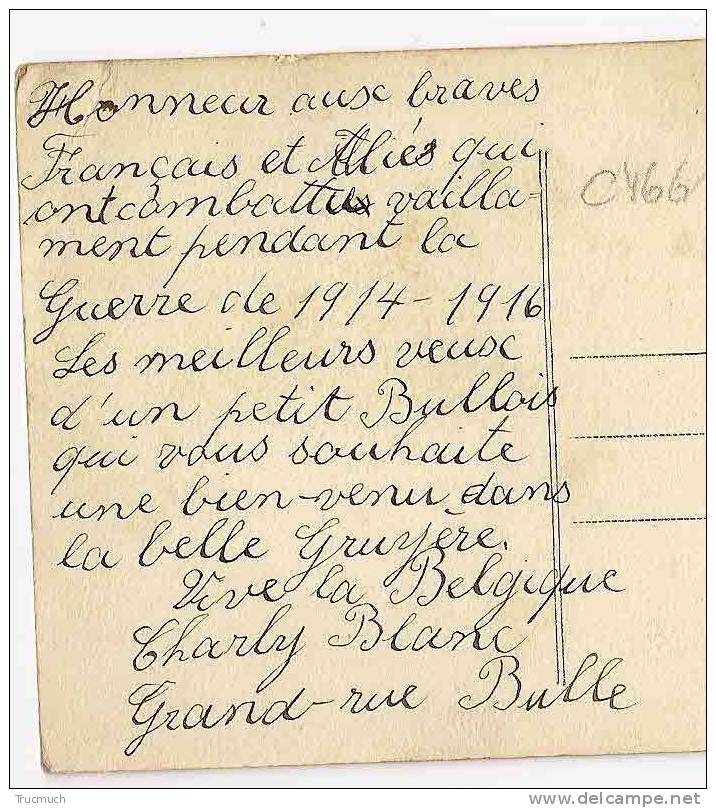 Honneur aux braves
Français et Alliés qui
ont combattu vailla-
ment pendant la
Guerre de 1914-1916
Les meilleurs veux
d'un petit Bullois
qui vous souhaite
une bien-venu dans
la belle Gruyère.
Vive la Belgique
Charly Blanc
Grand-rue Bulle
Trucmuch
delcampe.net